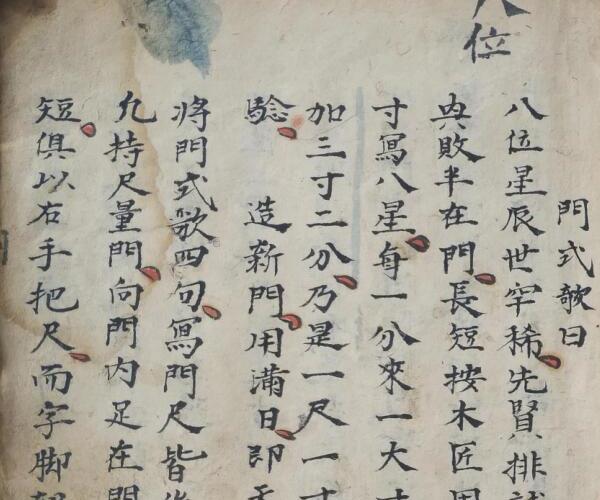 位
門式歌曰
八位星辰世罕稀先賢排
㒷敗半在門長短按木匠用
寸寫八星每一分來一大寸
加三寸二分乃是一尺一寸
驗
造新門用滿日即
將門式歌四句寫門尺皆
九持尺量門向門內足在門
短俱以右手把尺而字脚